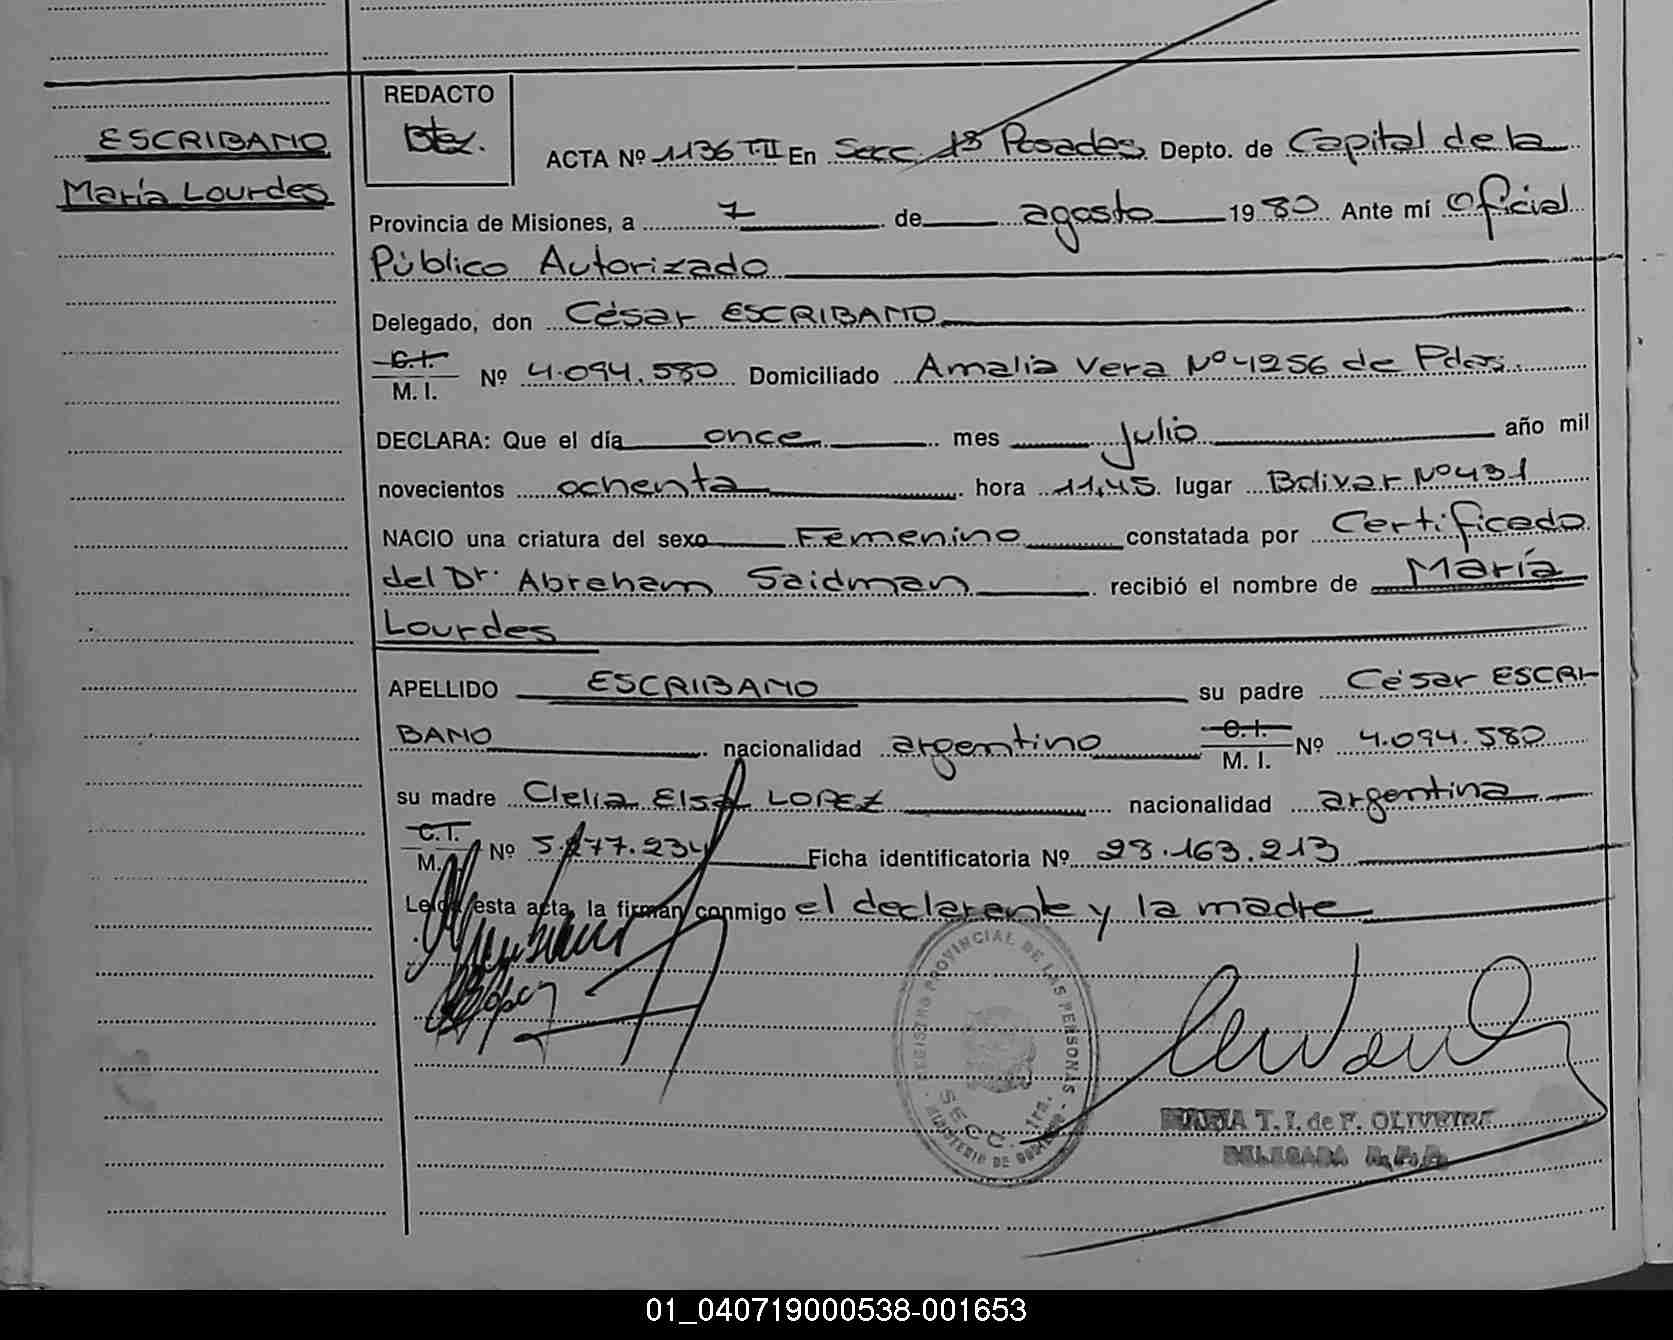 REDACTO
ESCRIBANO
María Lourdes
ACTA Nº 1136 T-II En Secc. 1ª Posadas Depto. de Capital de la
Provincia de Misiones, a 7 de agosto 1980 Ante mí Oficial
Público Autorizado
Delegado, don César ESCRIBANO
C.I.
M. I. Nº 4.094.580 Domiciliado Amalia Vera Nº 4256 de Pdas.
DECLARA: Que el día once mes julio año mil
novecientos ochenta hora 11,45 lugar Bolivar Nº 431
NACIO una criatura del sexo Femenino constatada por Certificado
del Dr. Abraham Saidman recibió el nombre de María
Lourdes
APELLIDO ESCRIBANO su padre César ESCRI-
BANO nacionalidad argentino C.I. M. I. Nº 4.094.580
su madre Clelia Elsa LOPEZ nacionalidad argentina
C.I.
M. Nº 5.277.234 Ficha identificatoria Nº 28.163.213
Leída esta acta, la firman conmigo el declarante y la madre
REGISTRO PROVINCIAL DE LAS PERSONAS
SECC. 1ra.
MINISTERIO DE GOBIERNO
MARIA T. I. de F. OLIVEIRA
DELEGADA R.P.P.
01_040719000538-001653